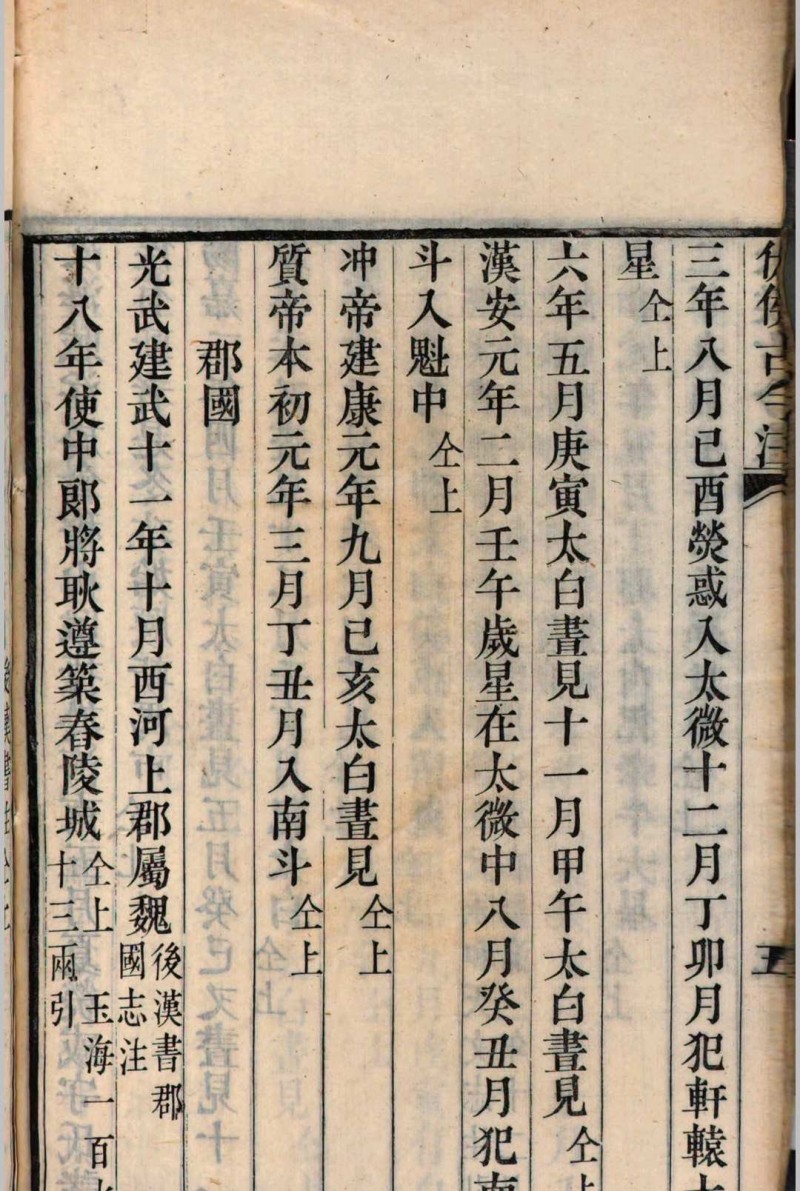 伏侯古今注
五
三年八月己酉熒惑入太微十二月丁卯月犯軒轅大
星仝上
六年五月庚寅太白晝見十一月甲午太白晝見仝上
漢安元年二月壬午歲星在太微中八月癸丑月犯南
斗入魁中仝上
冲帝建康元年九月己亥太白晝見仝上
質帝本初元年三月丁丑月入南斗仝上
郡國
光武建武十一年十月西河上郡屬魏後漢書郡國志注
十八年使中郞將耿遵築舂陵城仝上 玉海一百 十三兩引